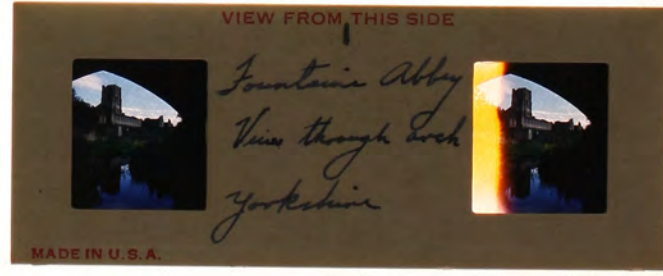 VIEW FROM THIS SIDE
Fountains Abbey
View through arch
Yorkshire
MADE IN U.S.A.